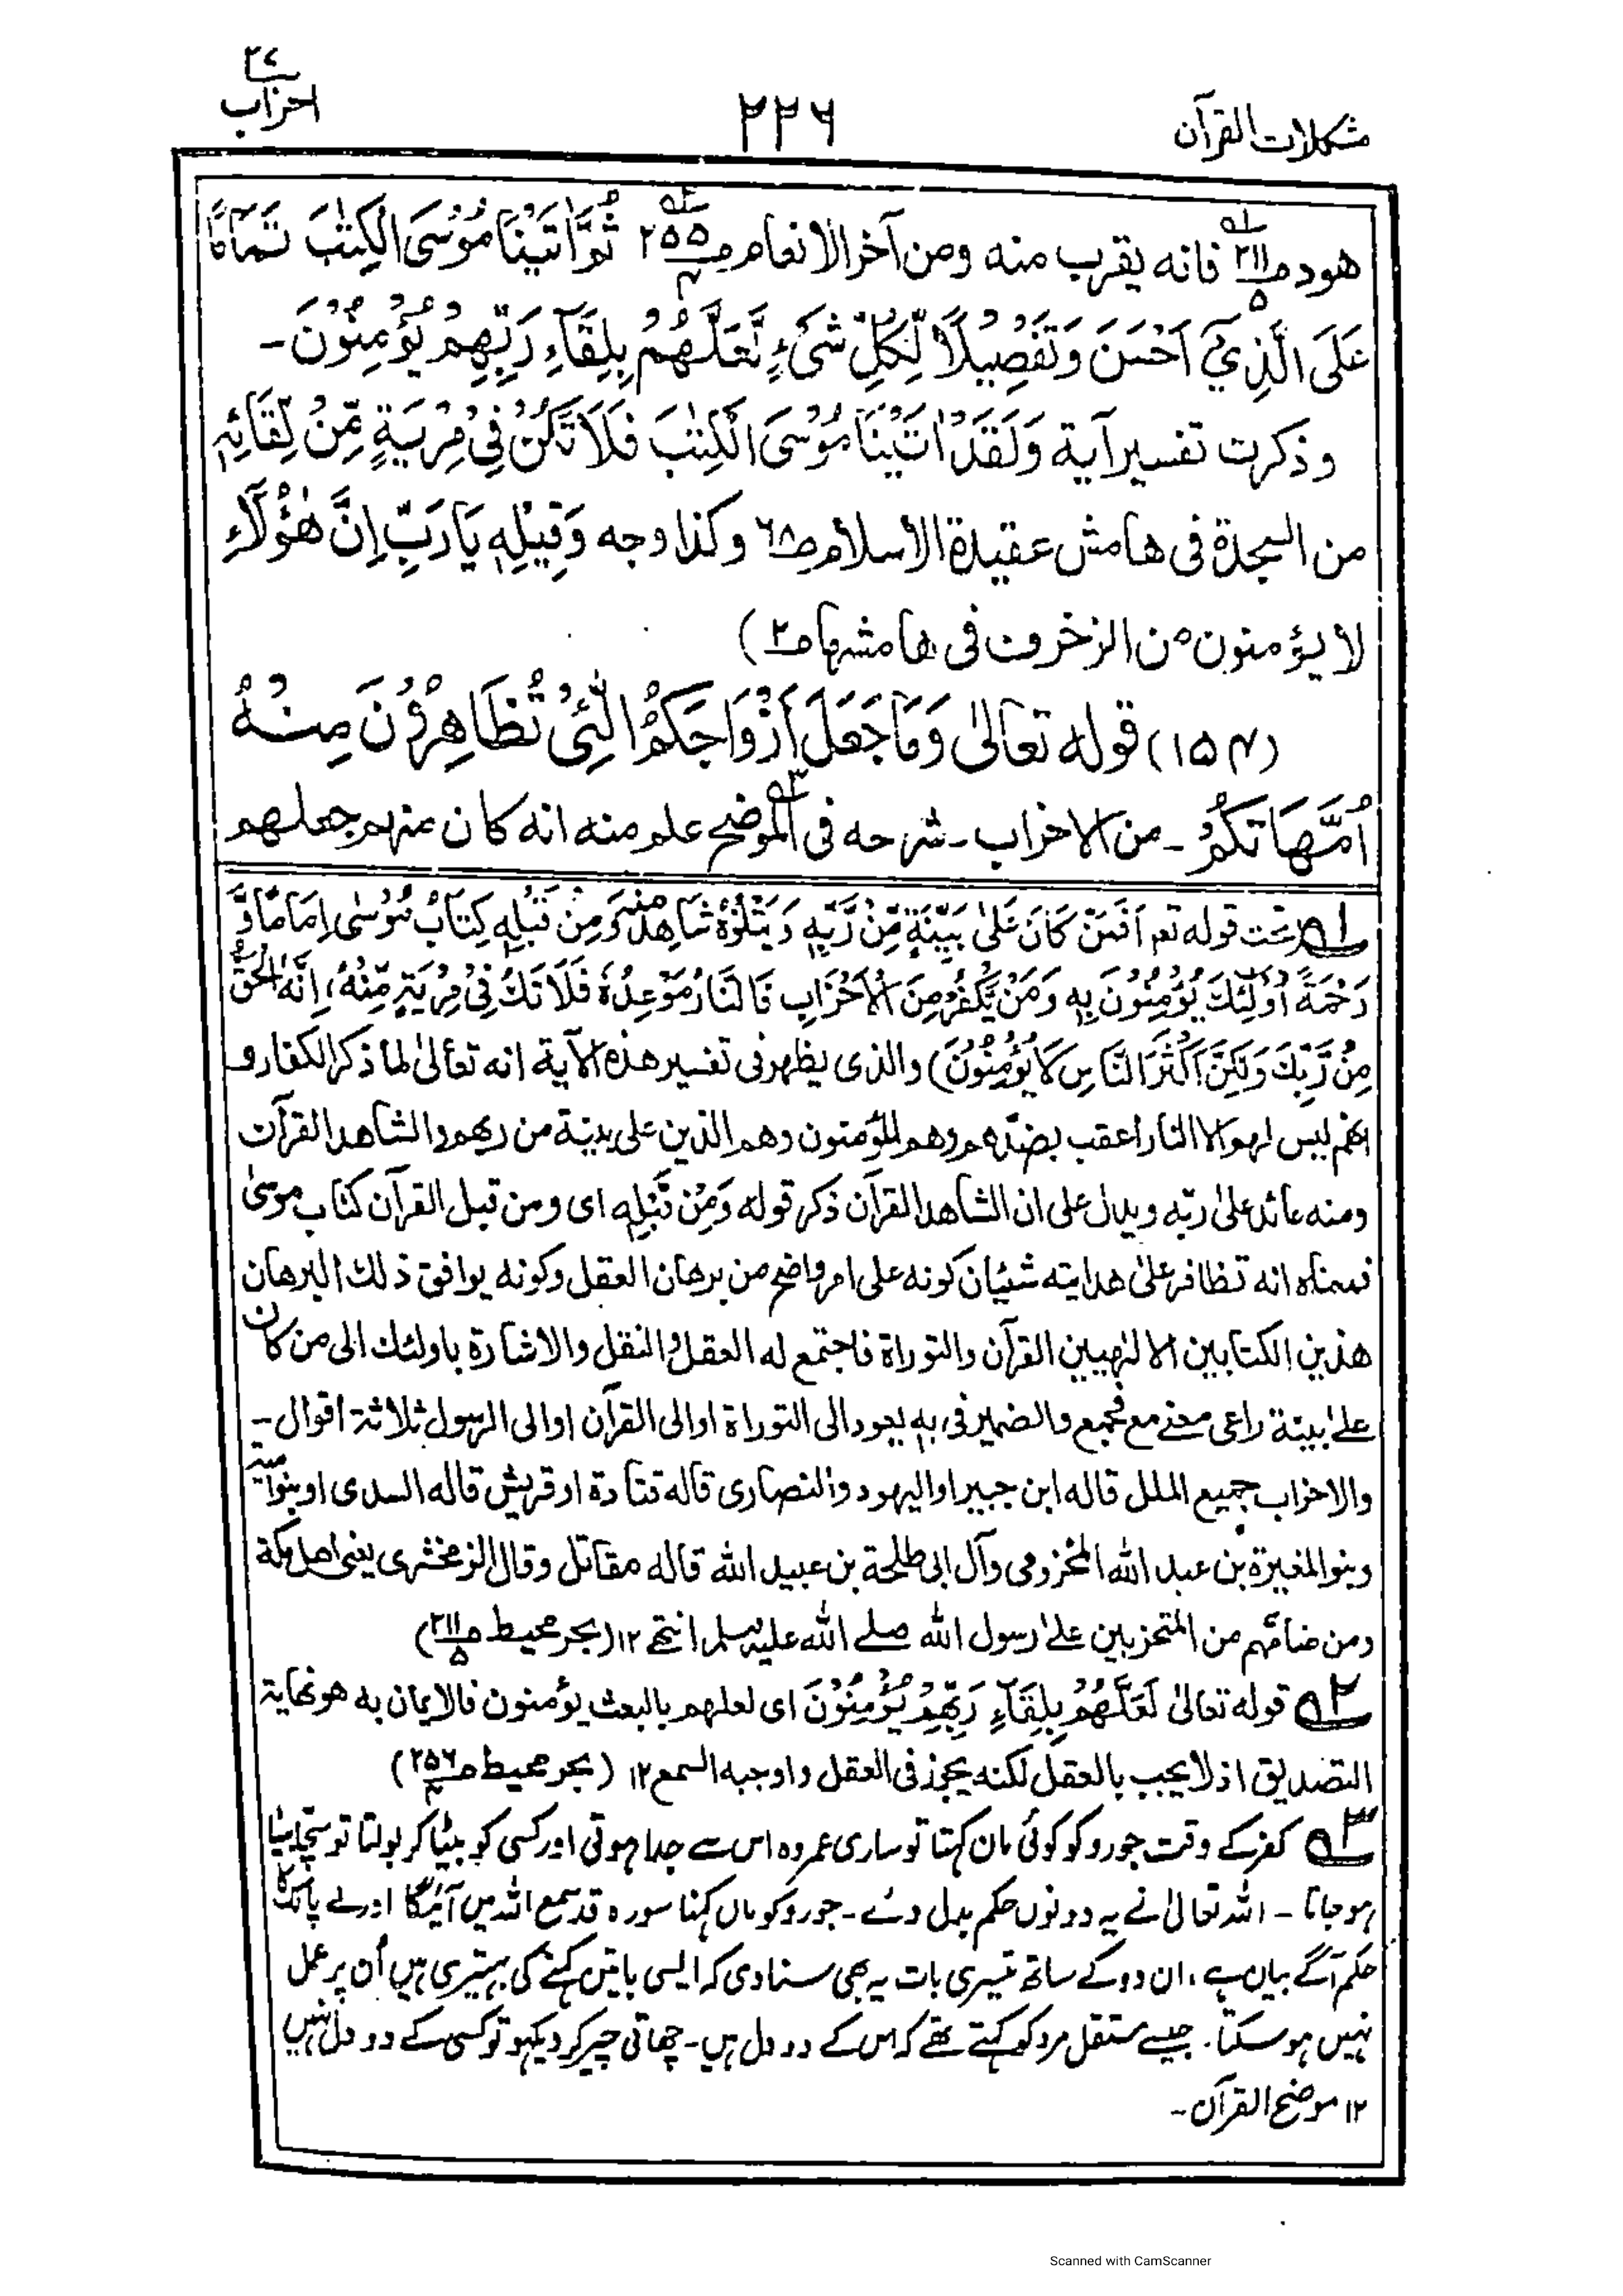 مشكلات القرآن
٢٢٦
احزاب
هود ص٢١١/٥ فانه يقرب منه ومن آخر الانعام ص٢٥٥/٤ ثُمَّ اٰتَيْنَا مُوْسَى الْكِتٰبَ تَمَامًا
عَلَى الَّذِيْٓ اَحْسَنَ وَتَفْصِيْلًا لِّكُلِّ شَيْءٍ لَّعَلَّهُمْ بِلِقَآءِ رَبِّهِمْ يُؤْمِنُوْنَ -
وذكرت تفسير آية وَلَقَدْ اٰتَيْنَا مُوْسَى الْكِتٰبَ فَلَا تَكُنْ فِيْ مِرْيَةٍ مِّنْ لِّقَائِهٖ
من السجدة فى هامش عقيدة الاسلام ص٦٨ وكذا وجه وَقِيْلِهٖ يَارَبِّ اِنَّ هٰؤُلَآءِ
لا يؤمنون من الزخرف فى هامشها ص٢)
(١٥٤) قوله تعالىٰ وَمَا جَعَلَ اَزْوَاجَكُمُ الّٰئِيْ تُظَاهِرُوْنَ مِنْهُ
اُمَّهَاتِكُمْ - من الاحزاب - شرحه فى الموضح٣ علم منه انه كان عنهم جعلهم
١ (تحت قوله تعم اَفَمَنْ كَانَ عَلىٰ بَيِّنَةٍ مِّنْ رَّبِّهٖ وَيَتْلُوْهُ شَاهِدٌ مِّنْهُ وَمِنْ قَبْلِهٖ كِتَابُ مُوْسٰى اِمَامًا وَّ
رَحْمَةً اُولٰٓئِكَ يُؤْمِنُوْنَ بِهٖ وَمَنْ يَّكْفُرْ مِنَ الْاَحْزَابِ فَالنَّارُ مَوْعِدُهٗ فَلَا تَكُ فِيْ مِرْيَةٍ مِّنْهُ، اِنَّهُ الْحَقُّ
مِنْ رَّبِّكَ وَلٰكِنَّ اَكْثَرَ النَّاسِ لَا يُؤْمِنُوْنَ) والذى يظهر فى تفسير هذه الآية انه تعالىٰ لما ذكر الكفار و
انهم ليس لهم الا النار اعقب بضدهم وهم المؤمنون وهم الذين على بينة من ربهم والشاهد القرآن
ومنه عائد علىٰ ربّه ويدل على ان الشاهد القرآن ذكر قوله وَمِنْ قَبْلِهٖ اى ومن قبل القرآن كتاب موسىٰ
فمعناه انه تظافر علىٰ هدايته شيئان كونه على امر واضح من برهان العقل وكونه يوافق ذلك البرهان
هذين الكتابين الالٰهيين القرآن والتوراة فاجتمع له العقل والنقل والاشارة باولئك الى من كان
علىٰ بينة راعى معنے مع فجمع والضمير فى به يعود الى التوراة او الى القرآن او الى الرسول ثلاثة اقوال -
والاحزاب جميع الملل قاله ابن جبير او اليهود والنصارى قاله قتادة او قريش قاله السدى او بنو امية
وبنو المغيرة بن عبد الله المخزومى وآل ابى طلحة بن عبيد الله قاله مقاتل وقال الزمخشرى يعنى اهل مكة
ومن ضامّهم من المتحزبين علىٰ رسول الله صلے الله عليه وسلم انتهے ١٢ (بحر محيط ص٢١١/٥)
٢ قوله تعالىٰ لَعَلَّهُمْ بِلِقَآءِ رَبِّهِمْ يُؤْمِنُوْنَ اى لعلهم بالبعث يؤمنون فالايمان به هو نهاية
التصديق اذ لا يجب بالعقل لكنه يجوز فى العقل واوجبه السمع ١٢ (بحر محيط ص٢٥٦/٤)
٣ کفر کے وقت جورو کو کوئی ماں کہتا تو ساری عمر وہ اس سے جدا ہوتی اور کسی کو بیٹا کر بولتا تو سچا بیٹا
ہو جاتا - اللہ تعالیٰ نے یہ دونوں حکم بدل دئے - جورو کو ماں کہنا سورہ قد سمع اللہ میں آئیگا اور لے پالک کا
حکم آگے بیان ہے، ان دو کے ساتھ تیسری بات یہ بھی سنا دی کہ ایسی باتیں کہنے کی بہتیری ہیں اُن پر عمل
نہیں ہو سکتا۔ جیسے مستقل مرد کو کہتے تھے کہ اس کے دو دل ہیں - چھاتی چیر کر دیکھو تو کسی کے دو دل نہیں
١٢ موضح القرآن -
Scanned with CamScanner